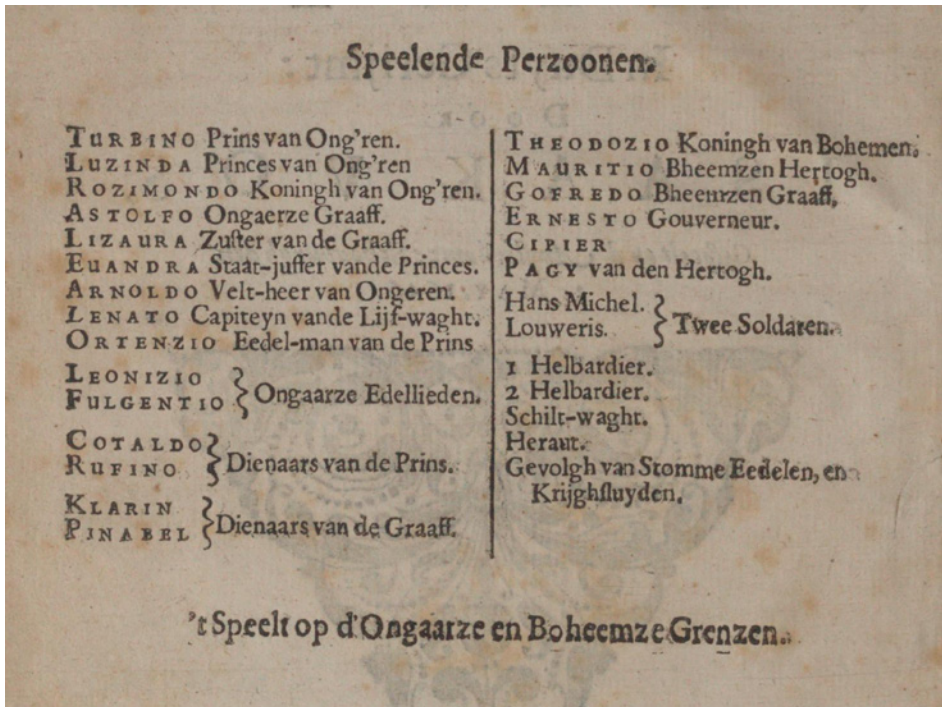 Speelende Perzoonen.
TURBINO Prins van Ong'ren.
LUZINDA Princes van Ong'ren
ROZIMONDO Koningh van Ong'ren.
ASTOLFO Ongaerze Graaff.
LIZAURA Zuster van de Graaff.
EUANDRA Staat-juffer vande Princes.
ARNOLDO Velt-heer van Ongeren.
LENATO Capiteyn vande Lijf-waght.
ORTENZIO Eedel-man van de Prins
LEONIZIO
FULGENTIO
Ongaarze Edellieden.
COTALDO
RUFINO
Dienaars van de Prins.
KLARIN
PINABEL
Dienaars van de Graaff.
THEODOZIO Koningh van Bohemen.
MAURITIO Bheemzen Hertogh.
GOFREDO Bheemzen Graaff,
ERNESTO Gouverneur.
CIPIER
PAGY van den Hertogh.
Hans Michel.
Louweris.
Twee Soldaten.
1 Helbardier.
2 Helbardier.
Schilt-waght.
Heraut.
Gevolgh van Stomme Eedelen, en
Krijghsluyden.
't Speelt op d'Ongaarze en Boheemze Grenzen.